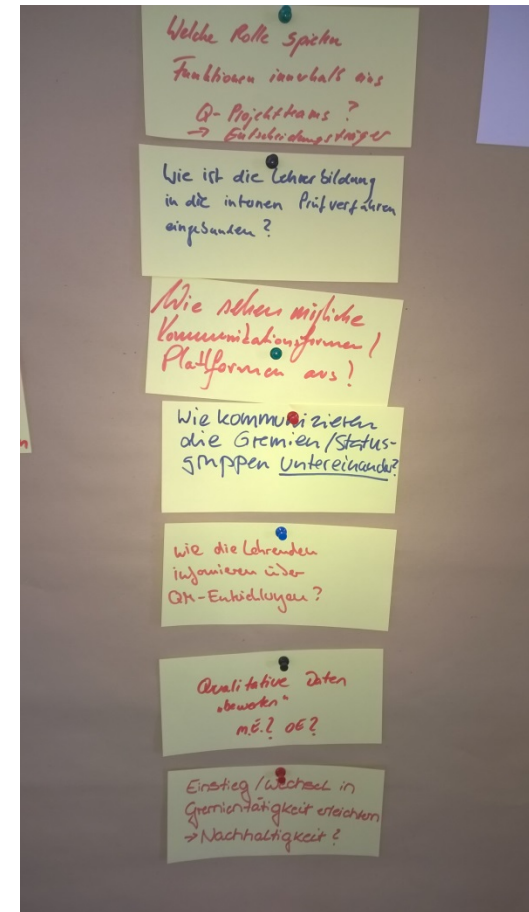 Welche Rolle spielen
Funktionen innerhalb eines
Q-Projektteams?
→ Entscheidungsträger
Wie ist die Lehrerbildung
in die internen Prüfverfahren
eingebunden?
Wie sehen mögliche
Kommunikationsformen /
Plattformen aus?
Wie kommunizieren
die Gremien/Status-
gruppen untereinander?
Wie die Lehrenden
informieren über
QM-Entwicklungen?
Qualitative Daten
„bewerten"
m.E.? OE?
Einstieg / Wechsel in
Gremientätigkeit erleichtern
→ Nachhaltigkeit?
n